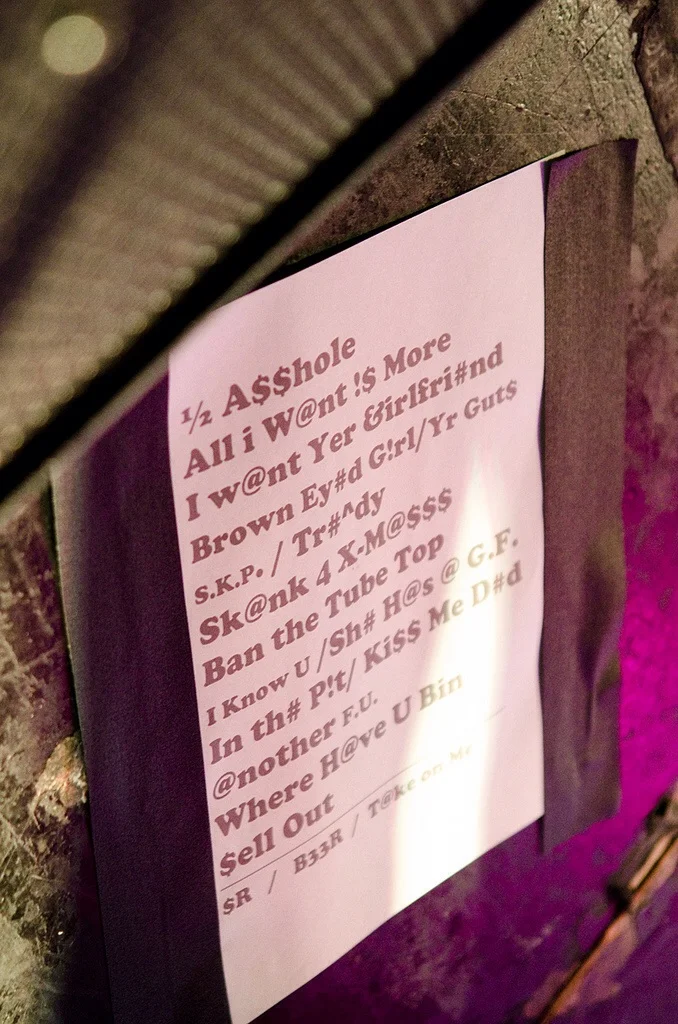 ½ A$$hole
All i W@nt !$ More
I w@nt Yer Girlfri#nd
Brown Ey#d G!rl/Yr Gut$
S.K.P. / Tr#^dy
Sk@nk 4 X-M@$$$
Ban the Tube Top
I Know U /Sh# H@s @ G.F.
In th# P!t/ Ki$$ Me D#d
@nother F.U.
Where H@ve U Bin
$ell Out
$R / B33R / T@ke on Me